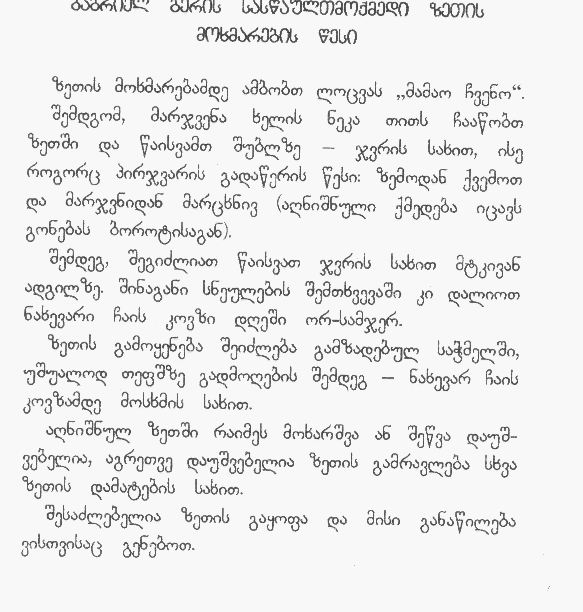 გაბრიელ ბერის სასწაულთმოქმედი ზეთის
მოხმარების წესი
ზეთის მოხმარებამდე ამბობთ ლოცვას „მამაო ჩვენო“.
შემდგომ, მარჯვენა ხელის ნეკა თითს ჩააწობთ
ზეთში და წაისვამთ შუბლზე – ჯვრის სახით, ისე
როგორც პირჯვარის გადაწერის წესი: ზემოდან ქვემოთ
და მარჯვნიდან მარცხნივ (აღნიშნული ქმედება იცავს
გონებას ბოროტისაგან).
შემდეგ, შეგიძლიათ წაისვათ ჯვრის სახით მტკივან
ადგილზე. შინაგანი სნეულების შემთხვევაში კი დალიოთ
ნახევარი ჩაის კოვზი დღეში ორ-სამჯერ.
ზეთის გამოყენება შეიძლება გამზადებულ საჭმელში,
უშუალოდ თეფშზე გადმოღების შემდეგ – ნახევარ ჩაის
კოვზამდე მოსხმის სახით.
აღნიშნულ ზეთში რაიმეს მოხარშვა ან შეწვა დაუშ-
ვებელია, აგრეთვე დაუშვებელია ზეთის გამრავლება სხვა
ზეთის დამატების სახით.
შესაძლებელია ზეთის გაყოფა და მისი განაწილება
ვისთვისაც გენებოთ.